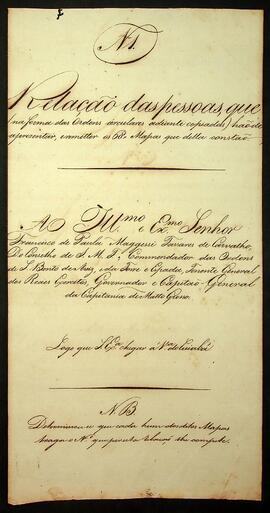 N 1.
Relação das pessoas, que
(na forma das Ordens circulares adiante copiadas) hão de
aprezentar, e metter os 68 Mapas que della constão.
Ao Ill.mo e Ex.mo Senhor
Francisco de Paula Maggessi Tavares de Carvalho,
Do Conselho de S. M. F., Commendador das Ordens
de S. Bento de Aviz, e da Torre e Espada, Tenente General
dos Reaes Exercitos, Governador e Capitão General
da Capitania de Matto Grosso.
Logo que S. Ex.ca chegar à V.a de Cuiabá
N.B.
Determinou-se que cada hum dos ditos Mapas
traga o N.o que por esta relação lhe compete.